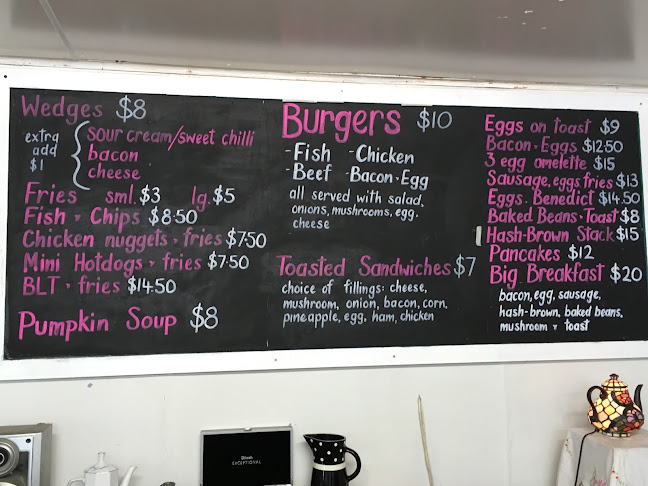 Wedges $8
extra add $1
sour cream/sweet chilli
bacon
cheese
Fries sml. $3 lg. $5
Fish + Chips $8.50
Chicken nuggets + fries $7.50
Mini Hotdogs + fries $7.50
BLT + fries $14.50
Pumpkin Soup $8
Burgers $10
- Fish - Chicken
- Beef - Bacon + Egg
all served with salad,
onions, mushrooms, egg,
cheese
Toasted Sandwiches $7
choice of fillings: cheese,
mushroom, onion, bacon, corn,
pineapple, egg, ham, chicken
Eggs on toast $9
Bacon + Eggs $12.50
3 egg omelette $15
Sausage, eggs, fries $13
Eggs Benedict $14.50
Baked Beans + Toast $8
Hash-Brown Stack $15
Pancakes $12
Big Breakfast $20
bacon, egg, sausage,
hash-brown, baked beans,
mushroom + toast
EXCEPTIONAL